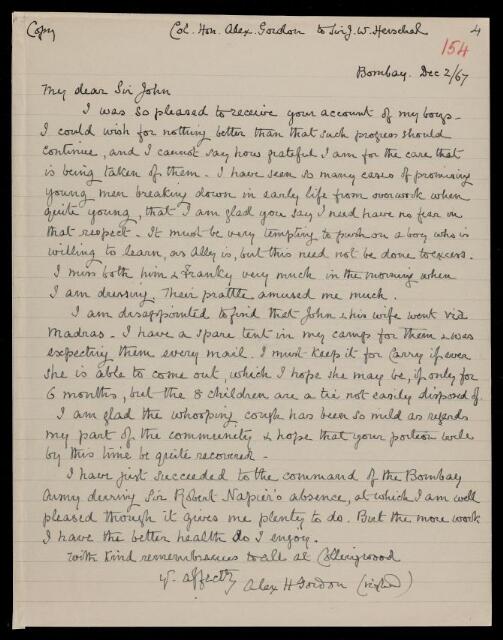 Copy
Col. Hon. Alex. Gordon to Sir J. W. Herschel
4
154
Bombay. Dec 2/67
My dear Sir John
I was so pleased to receive your account of my boys-
I could wish for nothing better than that such progress should
continue, and I cannot say how grateful I am for the care that
is being taken of them. I have seen so many cases of promising
young men breaking down in early life from overwork when
quite young, that I am glad you say I need have no fear in
that respect. It must be very tempting to push on a boy who is
willing to learn, as Ally is, but this need not be done to excess.
I miss both him & Franky very much in the morning when
I am dressing. Their prattle amused me much.
I am disappointed to find that John & his wife went via
Madras. I have a spare tent in my camp for them & was
expecting them every mail. I must keep it for Carry if ever
she is able to come out, which I hope she may be, if only for
6 months, but the 8 children are a tie not easily disposed of.
I am glad the whooping cough has been so mild as regards
my part of the community & hope that your portion will
by this time be quite recovered -
I have just succeeded to the command of the Bombay
Army during Sir Robert Napier's absence, at which I am well
pleased though it gives me plenty to do. But the more work
I have the better health do I enjoy.
With kind remembrances to all at Collingwood
yr. affectly
Alex H Gordon (signed)